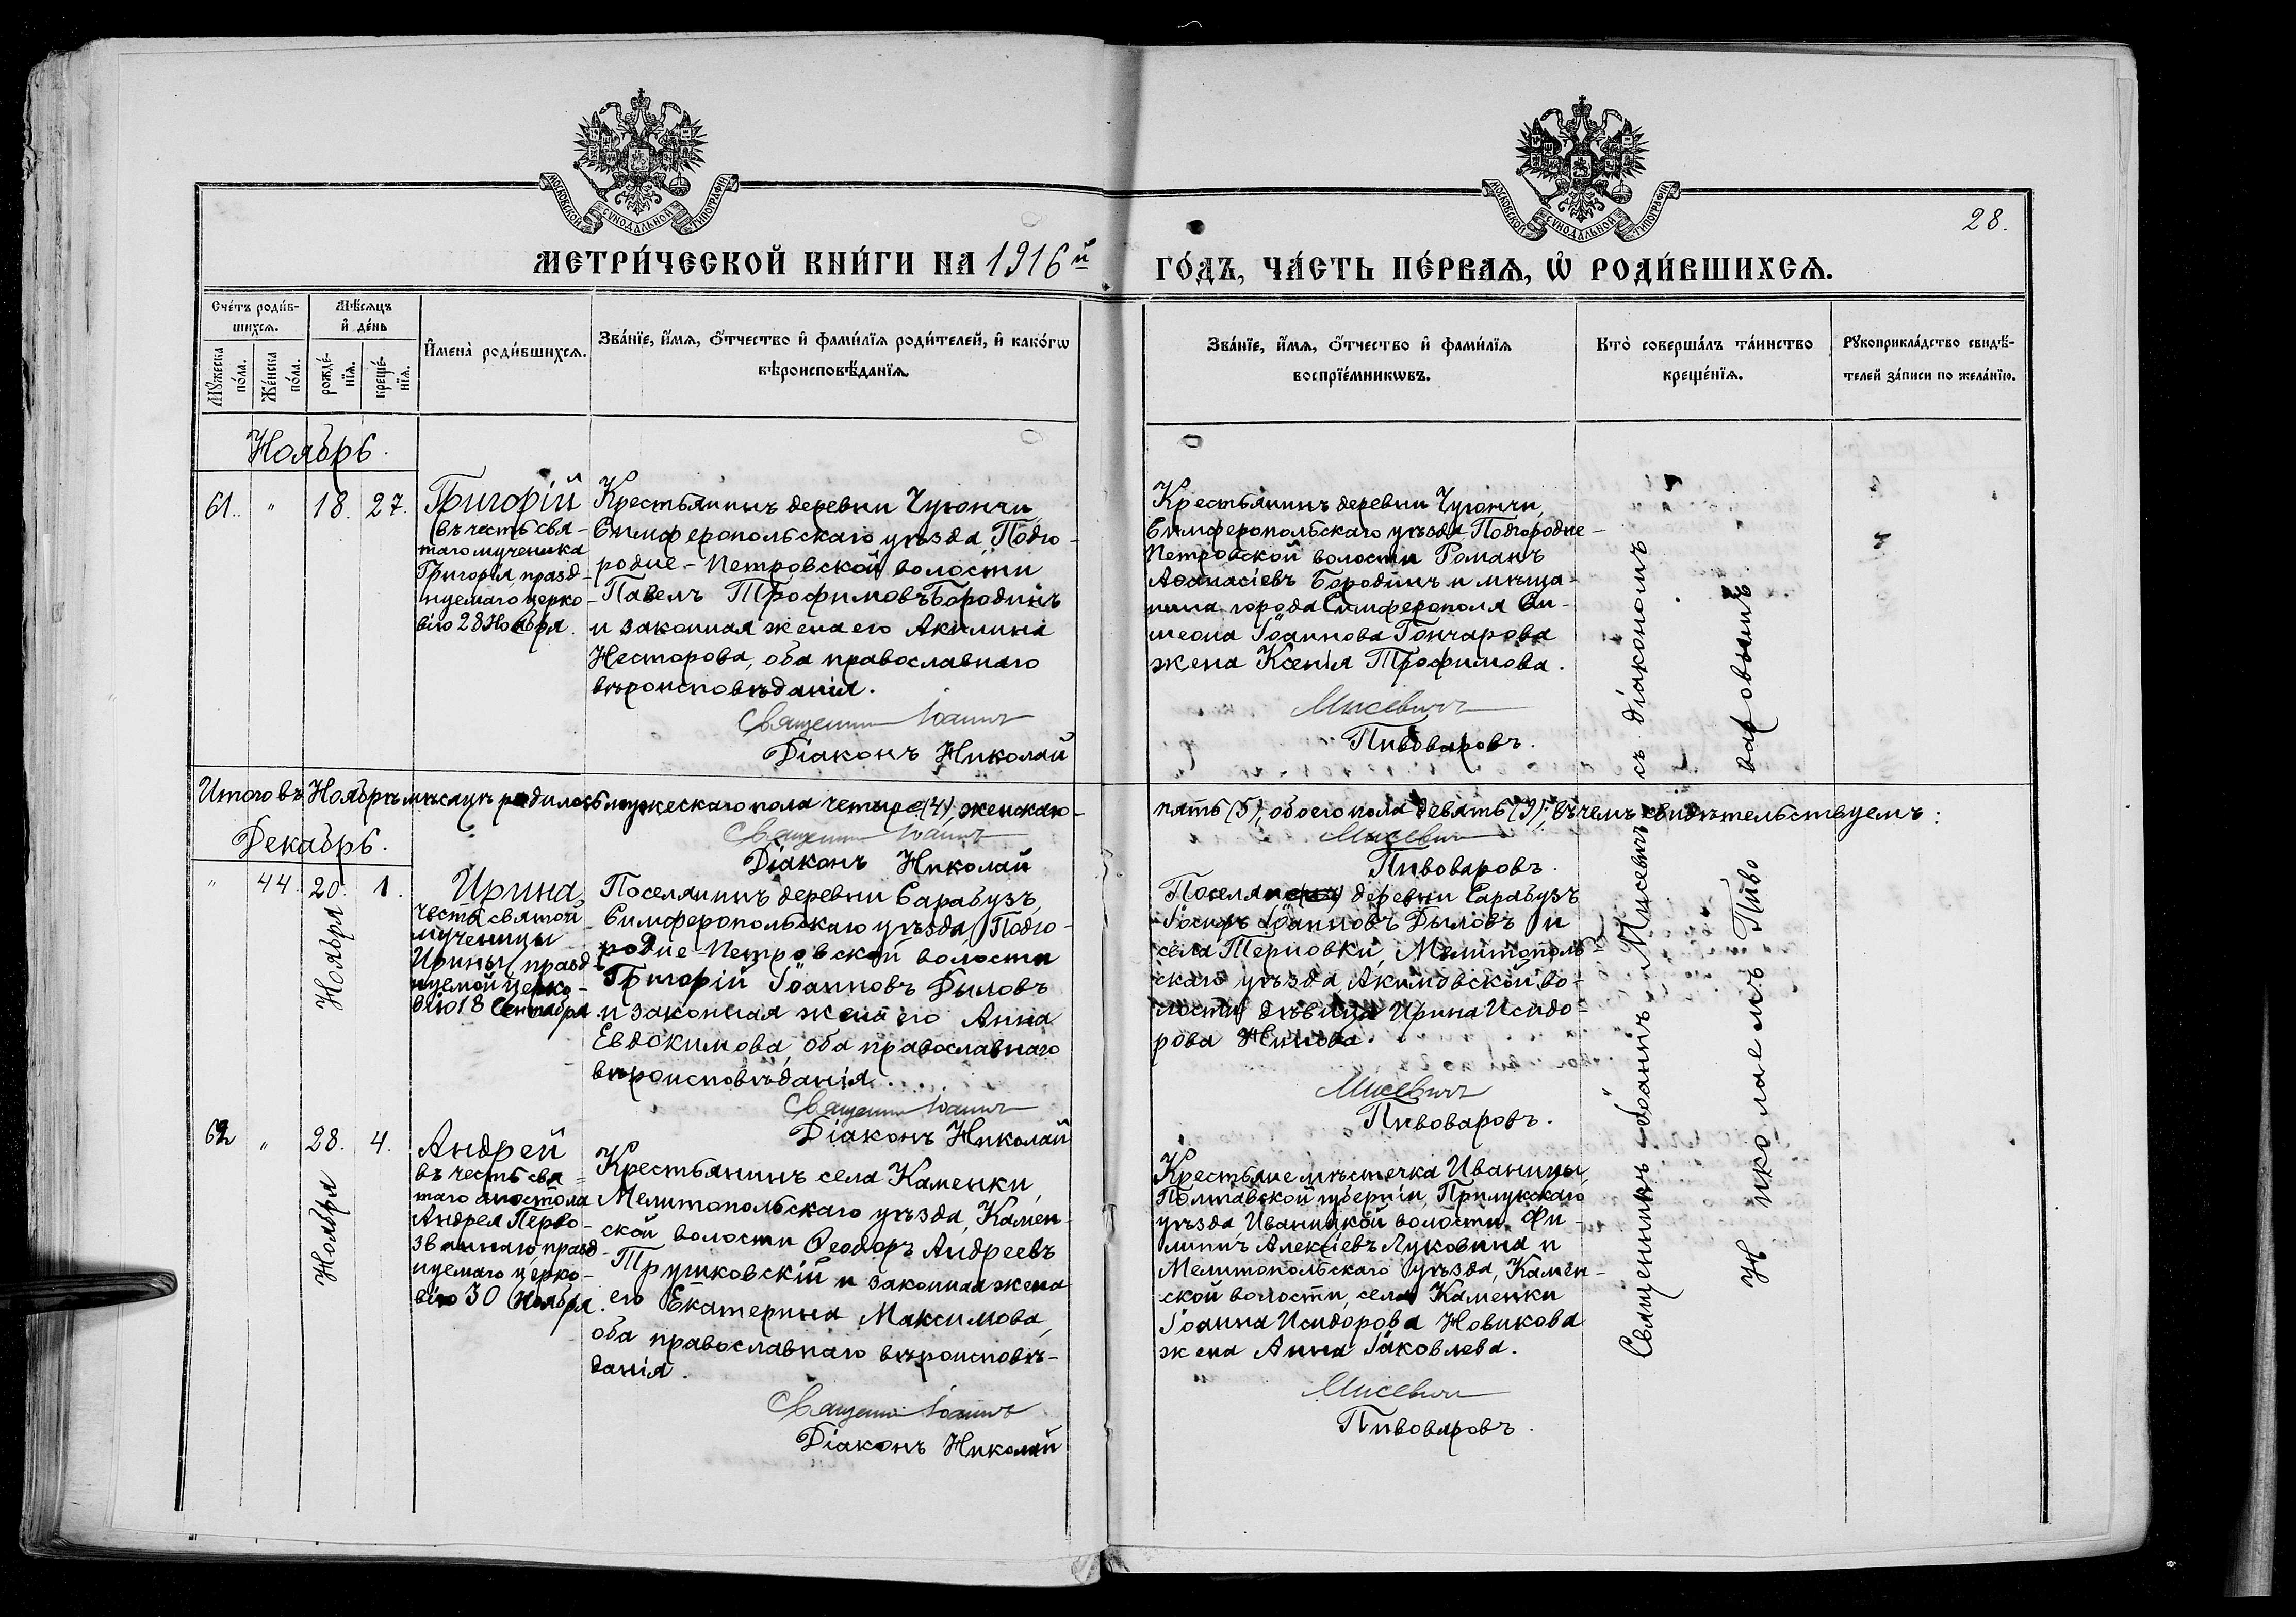 МОСКОВСКОЙ СУНОДАЛЬНОЙ ТИПОГРАФІИ
МОСКОВСКОЙ СУНОДАЛЬНОЙ ТИПОГРАФІИ
28.
МЕТРИ́ЧЕСКОЙ КНИ́ГИ НА 1916й ГО́ДЪ, ЧА́СТЬ ПЕ́РВАѦ, Ѡ҆ РОДИ́ВШИХСѦ.
Сче́тъ роди́в-
шихсѧ.
Мѣ́сѧцъ
и҆ де́нь
Мꙋ́жеска
по́ла.
Же́нска
по́ла.
рожде́-
нїѧ.
креще́-
нїѧ.
И҆мена̀ роди́вшихсѧ.
Зва́нїе, и҆́мѧ, ѻ҆́тчество и҆ фами́лїѧ роди́телей, и҆ како́гѡ
вѣроисповѣ́данїѧ.
Зва́нїе, и҆́мѧ, ѻ҆́тчество и҆ фами́лїѧ
воспрїе́мникѡвъ.
Кто̀ соверша́лъ та́инство
креще́нїѧ.
Рꙋкоприкла́дство свидѣ́-
телей за́писи по жела́нїю.
Ноябрь.
61. " 18. 27.
Григорій
(въ честь свя-
таго мученика
Григорія, празд-
нуемаго церко-
вію 28 Ноября.
Крестьянинъ деревни Чуюнчи,
Симферопольскаго уѣзда, Подго-
родне-Петровской волости
Павелъ Трофимовъ Бородинъ
и законная жена его Акилина
Несторова, оба православнаго
вѣроисповѣданія.
Священникъ Іоаннъ
Діаконъ Николай
Крестьянинъ деревни Чуюнчи,
Симферопольскаго уѣзда Подгородне-
Петровской волости Романъ
Аѳанасіевъ Бородинъ и мѣща-
нина города Симферополя Си-
меона Іоаннова Гончарова
жена Ксенія Трофимова.
Мисевичъ
Пивоваровъ.
Итого въ Ноябрѣ мѣсяцѣ родилось мужескаго пола четыре (4), женскаго-
пять (5), обоего пола девять (9); въ чемъ свидѣтельствуемъ:
Священникъ Іоаннъ
Мисевичъ
Діаконъ Николай
Пивоваровъ.
Декабрь.
" 44. 20. 1.
Ноября
Ирина
честь святой
мученицы
Ирины, празд-
нуемой церко-
вію 18 Сентября.
Поселянинъ деревни Сарабузъ,
Симферопольскаго уѣзда, Подго-
родне-Петровской волости
Григорій Іоанновъ Дыловъ
и законная жена его Анна
Евдокимова, оба православнаго
вѣроисповѣданія.
Священникъ Іоаннъ
Діаконъ Николай
деревни Сарабузъ
Іосифъ Іоанновъ Дыловъ и
села Терновки, Мелитополь-
скаго уѣзда, Акимовской во-
лости дѣвица Ирина Исидо-
рова
Мисевичъ
Пивоваровъ.
62 " 28. 4.
Ноября
Андрей
въ честь свя-
таго апостола
Андрея Перво-
званнаго, празд-
нуемаго церко-
вію 30 Ноября.
Крестьянинъ села Каменки,
Мелитопольскаго уѣзда, Камен-
ской волости Ѳеодоръ Андреевъ
Трушковскій и законная жена
его Екатерина Максимова,
оба православнаго вѣроисповѣ-
данія.
Священникъ Іоаннъ
Діаконъ Николай
Крестьяне мѣстечка Иваницы,
Полтавской губерніи, Прилукскаго
уѣзда, Иваницкой волости, Фи-
липпъ Алексіевъ Луковина и
Мелитопольскаго уѣзда, Камен-
ской волости, села Каменки
Іоанна Исидорова Новикова
жена Анна Іаковлева.
Мисевичъ
Пивоваровъ.
Священникъ Іоаннъ Мисевичъ съ діакономъ
Николаемъ Пивоваровымъ